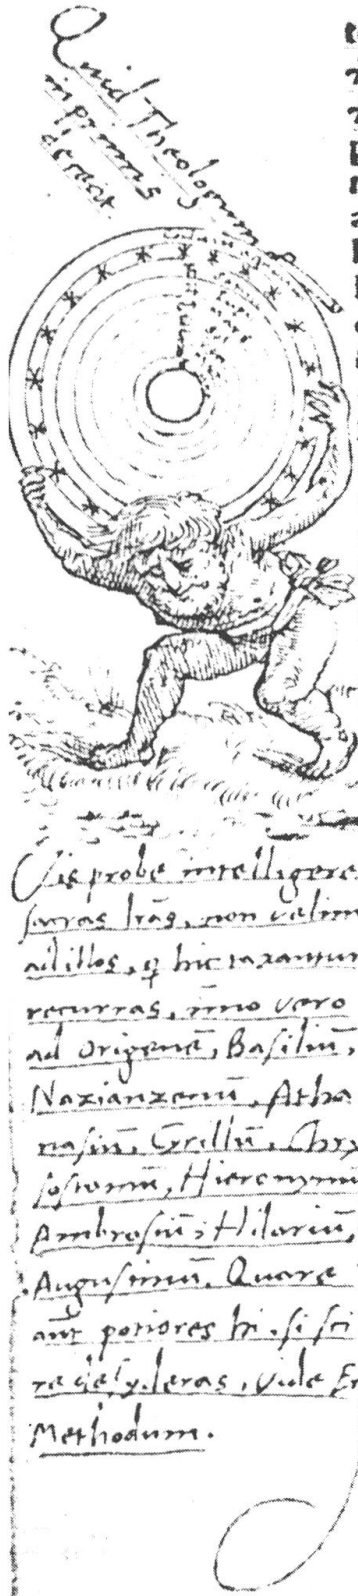 Quid Theologum
inprimis
deceat.
Vis probe intelligere
sacras lr̄as, non velim
ad illos, q̄ hic taxantur
recurras, im̄o vero
ad Origenē, Basiliū,
Nazianzenū, Atha
nasiū, Cyrillū, Chry
sostomū, Hieronymū
Ambrosiū, Hilariū,
Augustinū. Quare
aūt potiores hi, si sci
re desyderas, vide Er
Methodum.